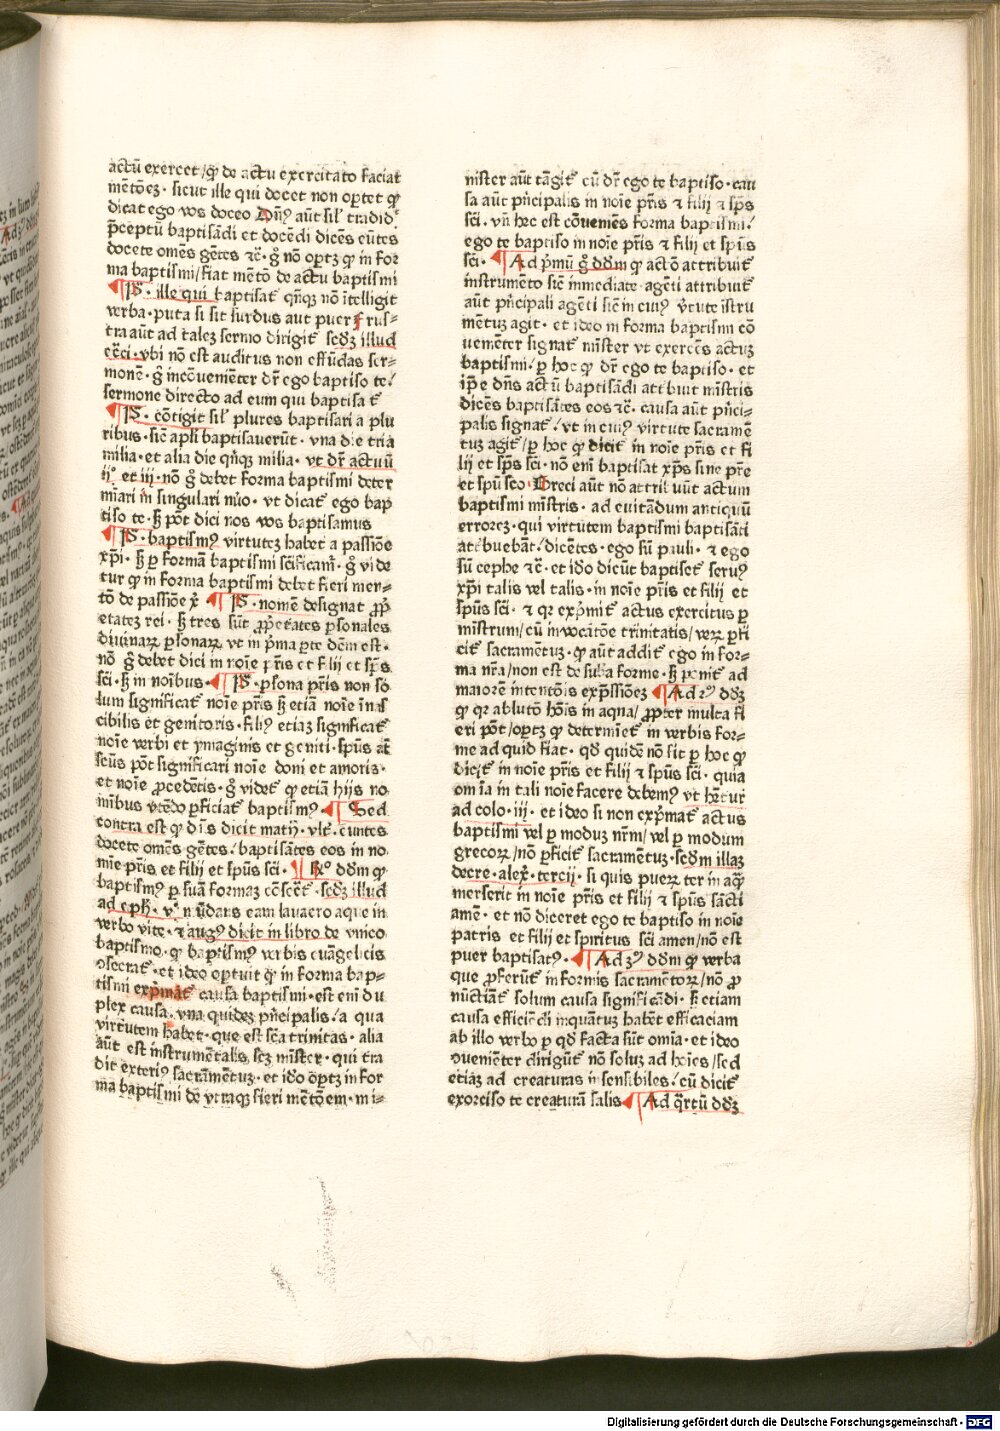 actū exercet/ꝙ de actu exercitato faciat
mētōeꝫ · sicut ille qui docet non oꝑtet ꝙ
dicat ego vos doceo Dn̄s aūt sil' tradid'
p̄ceptū baptisādi et docēdi dicēs eūtes
docete omēs gētes ⁊c̄ · g̊ nō oꝑtꝫ ꝙ in for
ma baptismi/fiat mētō de actu baptismi
¶ Pꝰ · ille qui baptisat̄ qn̄qꝫ nō ītelligit
verba · puta si sit surdus aut puer frus⸗
tra aūt ad taleꝫ sermo dirigit̄ scd̄ꝫ illud
ec̄ci · vbi nō est auditus non effūdas ser⸗
monē · g̊ incōuemēter dr̄ ego baptiso te/
sermone directo ad eum qui baptisat̄
¶ Pꝰ · cōtigit sil' plures baptisari a plu
ribus · sic̄ apl̄i baptisauerūt · vna die tria
milia · et alia die qn̄qꝫ milia · vt dr̄ actuū
ij° et iij · nō g̊ debet forma baptismi deter
mīari in singulari nūo · vt dicat̄ ego bap
tiso te · ꝫ pōt dici nos vos baptisamus
¶ Pꝰ · baptismꝰ virtuteꝫ habet a passiōe
xp̄i · ꝫ ꝑ formā baptismi sc̄ificam̄ · g̊ vide
tur ꝙ in forma baptismi debet fieri men⸗
tō de passiōe xp̄i ¶ Pꝰ · nomē designat ꝓp̄
etateꝫ rei · ꝫ tres sūt ꝓp̄etates ꝑsonales
diuinaꝝ ꝑsonaꝝ vt in p̄ma ꝑte dēm est ·
nō g̊ debet dici in noīe pr̄is et filij et sp̄s
sc̄i · ꝫ in noībus · ¶ Pꝰ · ꝑsona pr̄is non so
lum significat̄ noīe pr̄is ꝫ etiā noīe inas
cibilis et genitoris · filiꝰ etiaꝫ significat̄
noīe verbi et ymaginis et geniti · sp̄us āt
sc̄us pōt significari noīe doni et amoris ·
et noīe ꝓcedētis · g̊ videt̄ ꝙ etiā hijs no
mībus vtēdo ꝑficiat̄ baptismꝰ · ¶ Sed
contra est ꝙ dn̄s dicit math̄ · vlt̄ · euntes
docete omēs gētes/ baptisātes eos in no
mīe pr̄is et filij et sp̄us sc̄i · ¶ R° dd̄m ꝙ
baptismꝰ ꝑ suā formaꝫ cōsecrat̄ · scd̄ꝫ illud
ad eph̄ · v° mūdans eam lauacro aque in
verbo vite · ⁊ augꝰ dicit in libro de vnico
baptismo · ꝙ baptismꝰ verbis euāgelicis
ꝯsecrat̄ · et ideo oꝑtuit ꝙ in forma bap⸗
tismi exp̄mat̄ causa baptismi · est enī du
plex causa · vna quideꝫ p̄ncipalis/ a qua
virtutem habet · que est sc̄a trinitas · alia
aūt est instrumētalis scꝫ mīster · qui tra
dit exteriꝰ sacramētuꝫ · et idō oꝑtꝫ in for
ma baptismi de vtraqꝫ fieri mētōem · mi⸗
nister aūt tāgit̄ cū dr̄ ego te baptiso · cau
sa aūt p̄ncipalis in noīe pr̄is ⁊ filij ⁊ sp̄s
sc̄i · vn̄ hec est cōuemēs forma baptismi/
ego te baptiso in noīe pr̄is ⁊ filij et sp̄us
sc̄i · ¶ Ad p̄mū g̊ dd̄m ꝙ actō attribuit̄
instrumēto sic̄ inmediate agēti attribuit̄
aūt p̄ncipali agēti sic̄ in cuiꝰ v̄tute īstru
mētuꝫ agit · et ideo in forma baptismi cō
uemēter signat̄ mīster vt exercēs actuꝫ
baptismi/ ꝑ hoc ꝙ dr̄ ego te baptiso · et
ip̄e dn̄s actū baptisādi attibuit mīstris
dicēs baptisātes eos ⁊c̄ · causa aūt p̄nci⸗
palis signat̄/ vt in cuiꝰ virtute sacramē
tuꝫ agit̄/ ꝑ hoc ꝙ dicit̄ in noīe pr̄is et fi
lij et sp̄s sc̄i · nō enī baptisat xp̄s sine pr̄e
et spū sc̄o · Greci aūt nō attribuūt actum
baptismi mīstris · ad euitādum antiquū
erroreꝫ · qui virtutem baptismi baptisāti
attibuebāt/ dicētes · ego sū pauli · ⁊ ego
sū cephe ⁊c̄ · et idō dicūt baptiset̄ seruꝰ
xp̄i talis vel talis · in noīe pr̄is et filij et
sp̄us sc̄i · ⁊ qr exp̄mit̄ actus exercitus ꝑ
mīstrum/ cū inuocatōe trinitatis/ veꝝ ꝑfi
cit̄ sacramētuꝫ · ꝙ aūt addit̄ ego in for⸗
ma nr̄a/non est de sub̄a forme · ꝫ ponit̄ ad
maiorē intentōis exp̄ssiōeꝫ ¶ Ad 2ꝰ dd̄ꝫ
ꝙ qr ablutō hōis in aqua/ ꝓpter multa fi
eri pōt/ oꝑtꝫ ꝙ determīet̄ in verbis for⸗
me ad quid fiat · qd̄ quidē nō fit ꝑ hoc ꝙ
dicit̄ in noīe pr̄is et filij ⁊ sp̄us sc̄i · quia
omīa in tali noīe facere debemꝰ vt het̄ur
ad colo · iij · et ideo si non exp̄mat̄ actus
baptismi vel ꝑ moduꝫ nr̄m/ vel ꝑ modum
grecoꝝ/ nō ꝑficit̄ sacramētuꝫ · scd̄m illaꝫ
decre · alex̄ · tercij · si quis pueꝝ ter in aq̄
merserit in noīe pr̄is et filij ⁊ sp̄us sācti
amē · et nō diceret ego te baptiso in noīe
patris et filij et spiritus sc̄i amen/ nō est
puer baptisatꝰ · ¶ Ad 3ꝰ dd̄m ꝙ verba
que ꝓferūt̄ in formis sacramētoꝝ/ nō ꝓ
nūctiāt̄ solum causa significādi · ꝫ etiam
causa efficiēdi inquātuꝫ habēt efficaciam
ab illo verbo ꝑ qd̄ facta sūt omīa · et ideo
ꝯuemēter dirigūt̄ nō soluꝫ ad hoīes/ sed
etiaꝫ ad creaturas insensibiles/ cū dicit̄
exorciso te creaturā salis ¶ Ad q̄rtū dd̄ꝫ
Digitalisierung gefördert durch die Deutsche Forschungsgemeinschaft · DFG